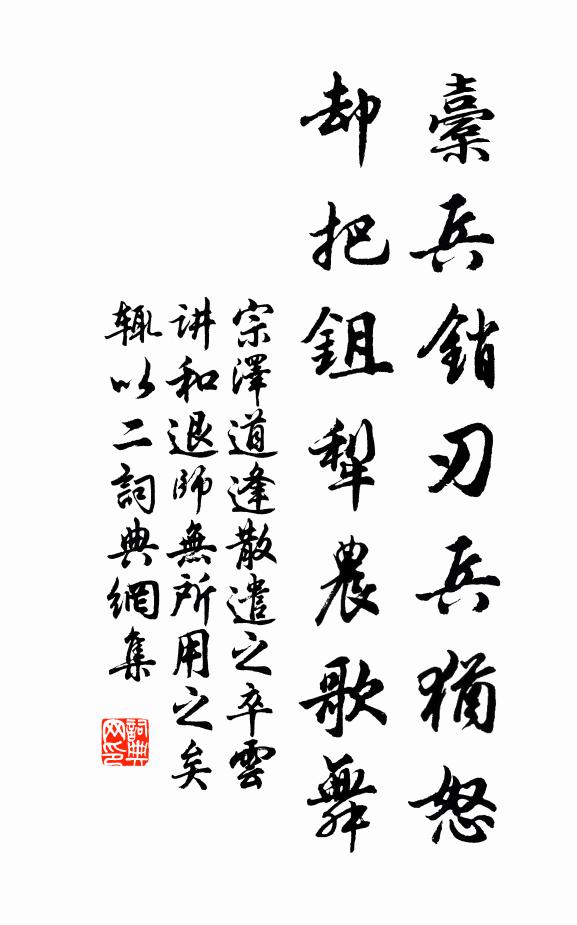 櫜兵銷刃兵猶怒
却把鉏犁農歌舞
宗澤道逢散遣之卒雲
讲和退師無所用之矣
輒以二詞典網集
詞典網印